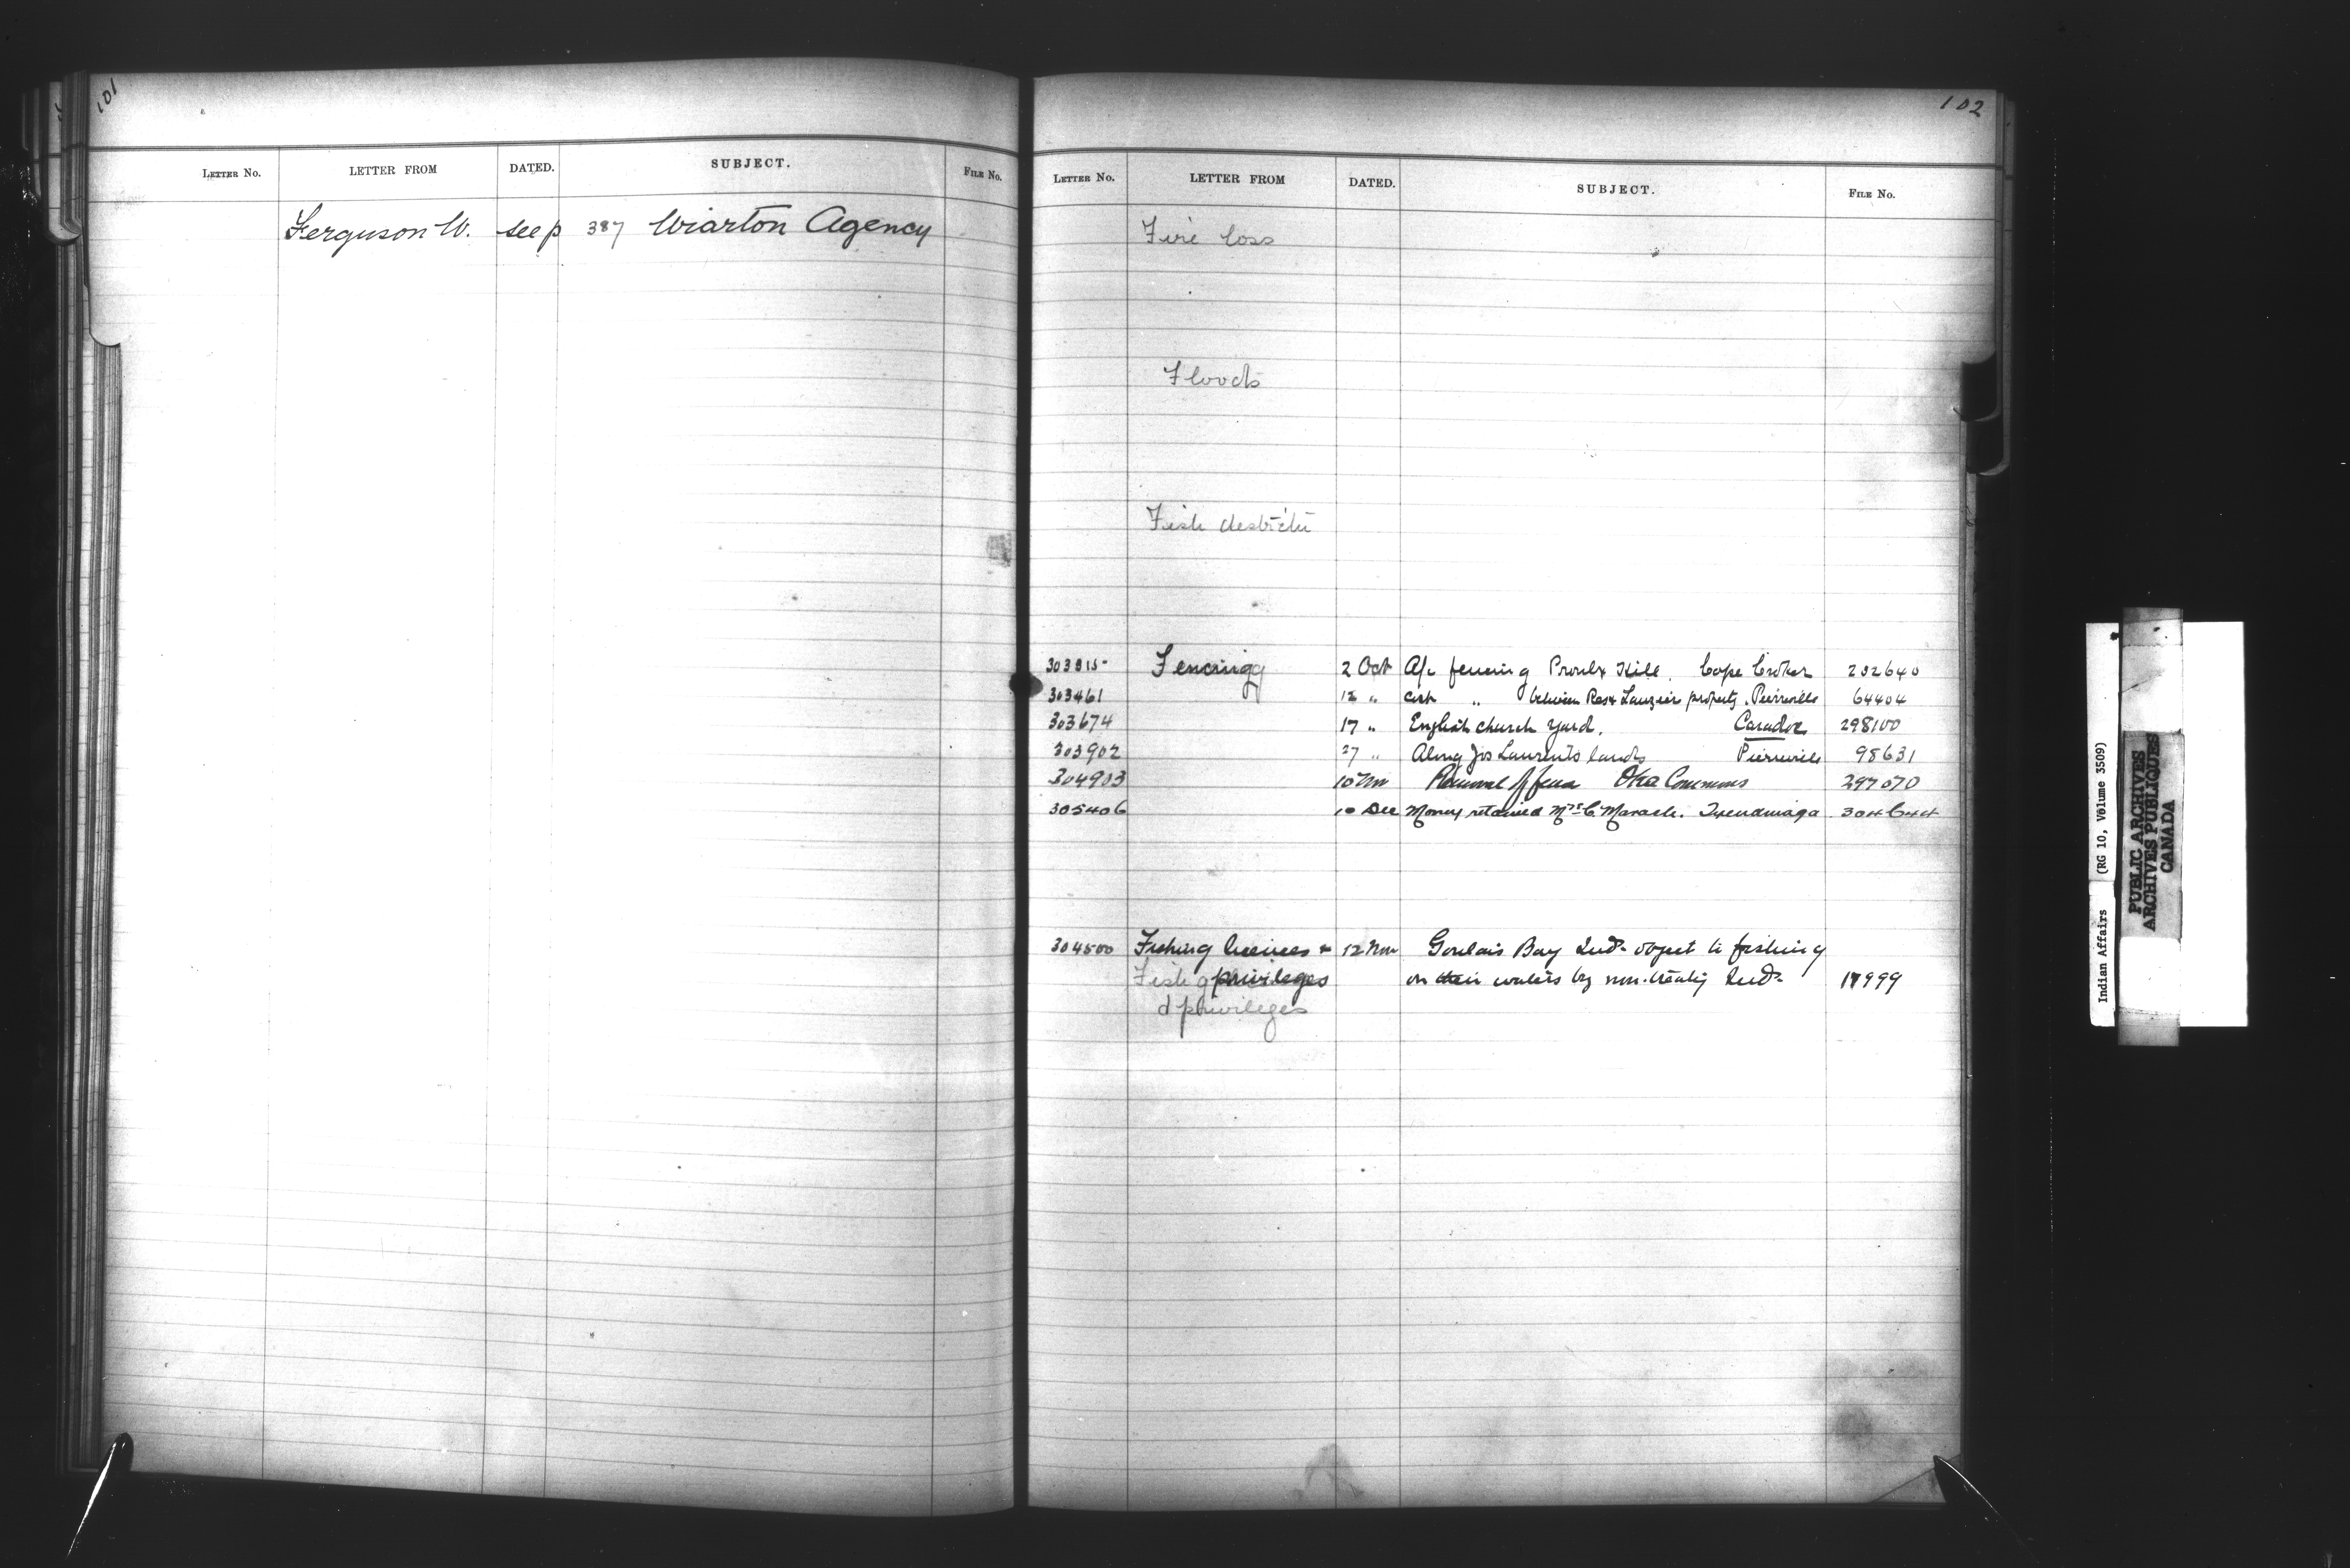 101
LETTER NO. LETTER FROM DATED. SUBJECT. FILE NO.
Ferguson W. see p 387 Wiarton Agency
102
LETTER NO. LETTER FROM DATED. SUBJECT. FILE NO.
Fire loss
Floods
Fish
303315 Fencing 2 Oct A/c fencing Cape Croker 202640
303461 12 " " between Res & property. Pierreville 64404
303674 17 " English church yard. Caradoc 298100
303902 27 " Along Jos Laurents lands Pierreville 98631
304903 10 Nov Removal of fence Oka Commons 297070
305406 10 Dec Money retained Mrs C. Maracle. Tyendinaga 304644
304500 Fishing licenses & 12 Nov Goulais Bay Inds object to fishing
Fish g privileges on their waters by non-treaty Inds 17999
d privileges
Indian Affairs (RG 10, Volume 3509)
PUBLIC ARCHIVES
ARCHIVES PUBLIQUES
CANADA